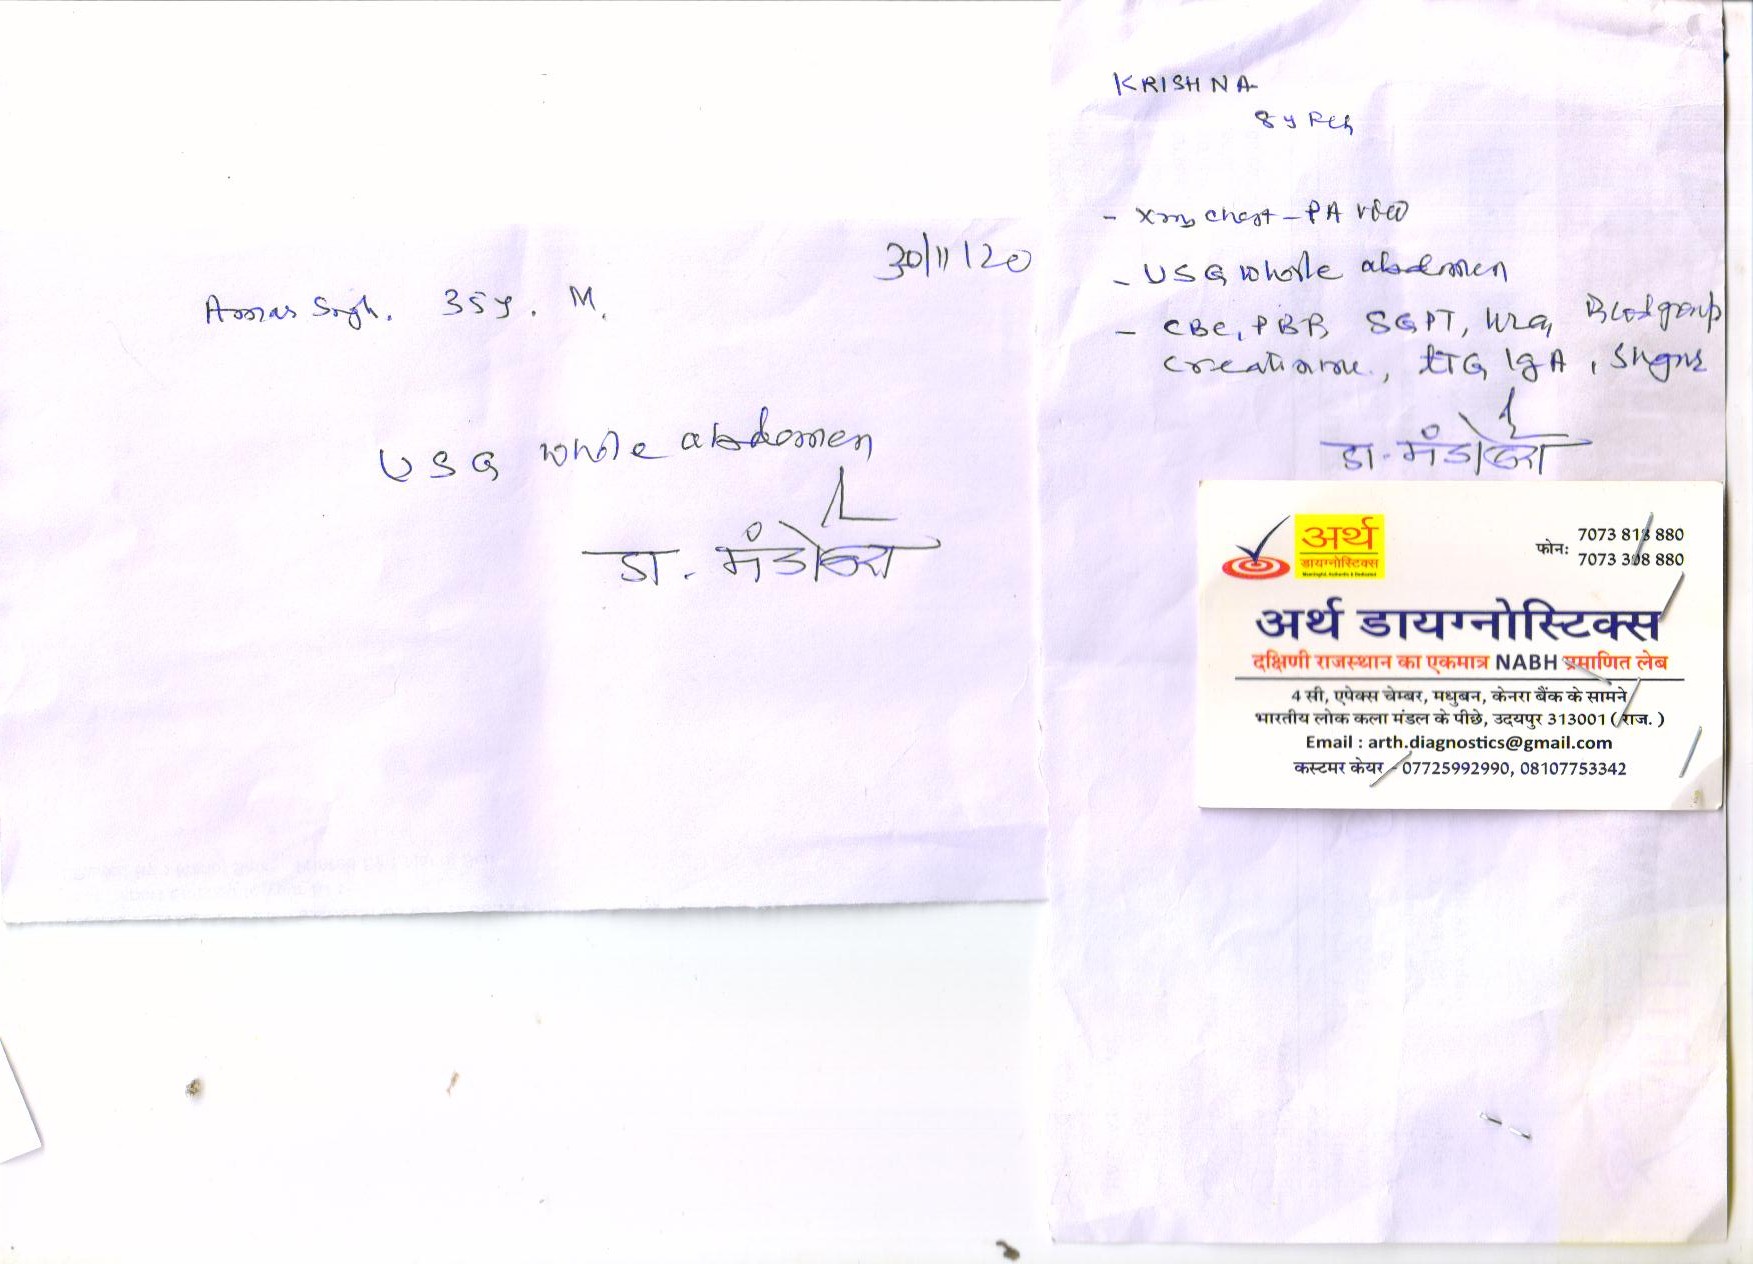 30/11/20
Amar Singh. 35y. M.
USG whole abdomen
डा. मंडोवरा
KRISHNA
8 y Fch
- Xray chest - PA view
- USG whole abdomen
- CBC, PBF, SGPT, Urea, Blood group
creatinine, tTG IgA,
डा. मंडोवरा
अर्थ
डायग्नोस्टिक्स
फोन: 7073 818 880
7073 308 880
अर्थ डायग्नोस्टिक्स
दक्षिणी राजस्थान का एकमात्र NABH प्रमाणित लेब
4 सी, एपेक्स चेम्बर, मधुबन, केनरा बैंक के सामने
भारतीय लोक कला मंडल के पीछे, उदयपुर 313001 ( राज. )
Email : arth.diagnostics@gmail.com
कस्टमर केयर - 07725992990, 08107753342